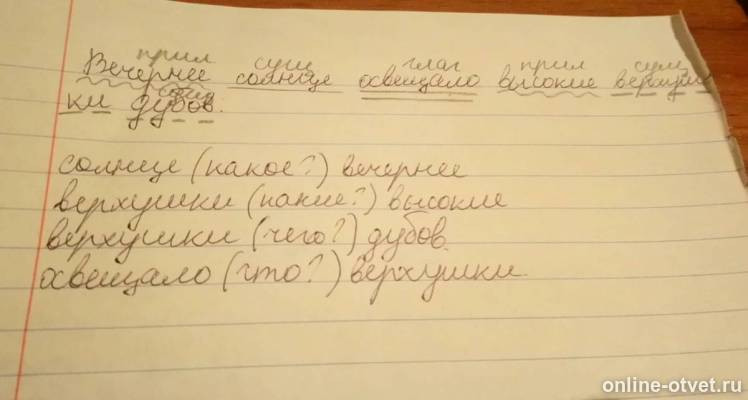 прил сущ глаг прил сущ
Вечернее солнце освещало высокие верхуш
сущ
ки дубов.
солнце (какое?) вечернее
верхушки (какие?) высокие
верхушки (чего?) дубов.
освещало (что?) верхушки.
online-otvet.ru